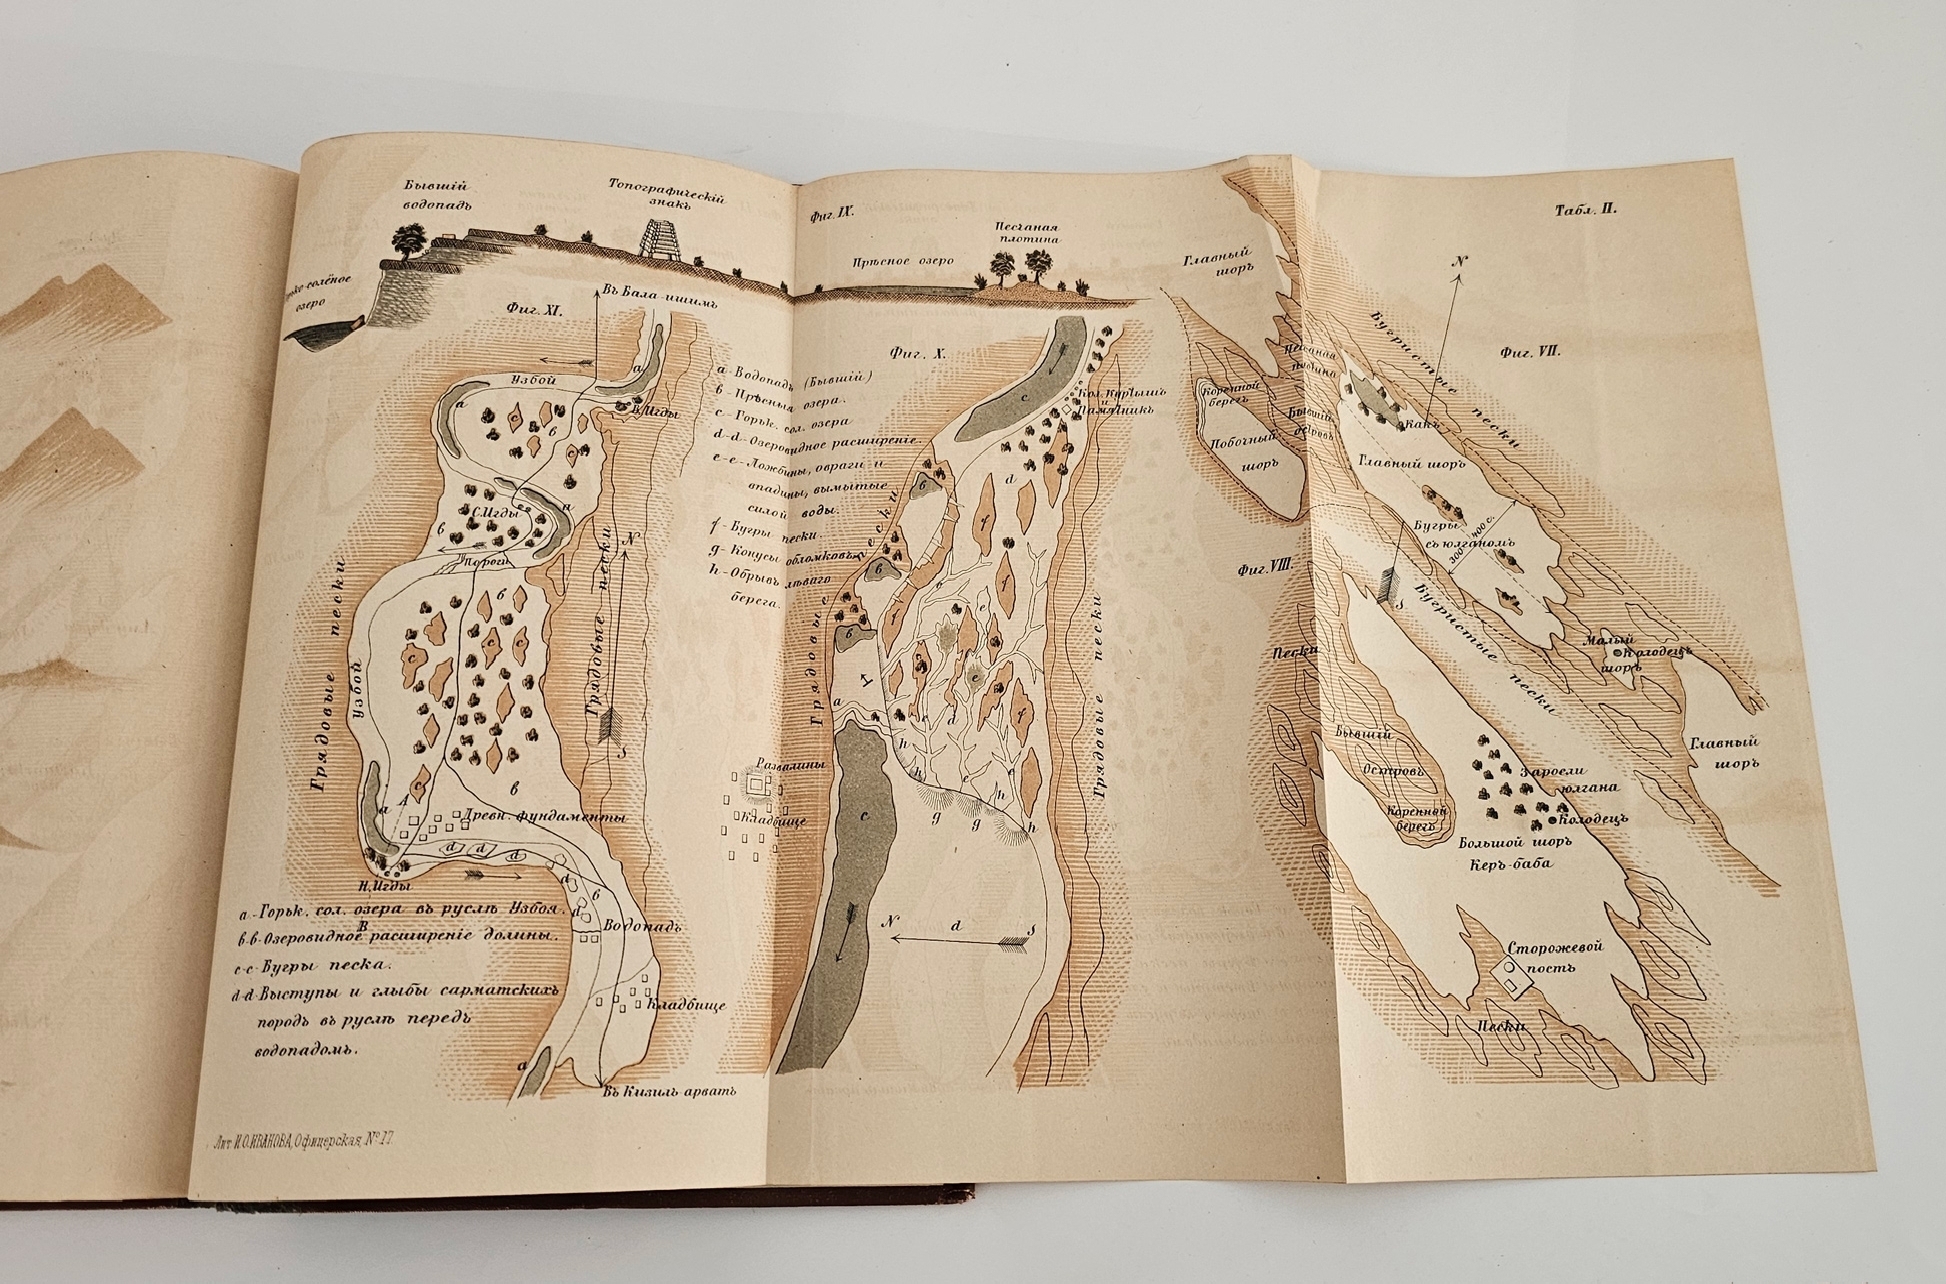 Бывшій
водопадъ
Топографическій
знакъ
озеро
Фиг. IX.
Прѣсное озеро
Песчаная
плотина
Табл. II.
Фиг. XI.
Въ Бала-ишимъ
Узбой
a
a
В. Игды
в
c
С. Игды
a
в
Пороги
Грядовые пески
Узбой
c
c
c
в
c
в
Грядовые пески
N
S
a
A
Древн. фундаменты
d
d
d
d
d
в
Н. Игды
B
Водопадъ
Кладбище
a
Въ Кизилъ арватъ
Развалины
Кладбище
a - Горьк. сол. озера въ руслѣ Узбоя.
в-в - Озеровидное расширеніе долины.
c-c - Бугры песка.
d-d - Выступы и глыбы сарматскихъ
породъ въ руслѣ передъ
водопадомъ.
Лит. И. О. ИВАНОВА, Офицерская, № 17.
Фиг. X.
a - Водопадъ (Бывшій)
в - Прѣсныя озера.
c - Горьк. сол. озера
d-d - Озеровидное расширеніе.
e-e - Ложбины, овраги и
впадины, вымытые
силой воды.
f - Бугры пески.
g - Конусы обломковъ
h - Обрывъ лѣваго
берега.
Грядовые пески
c
Кол. Куртышъ
и
Памятникъ
d
в
в
в
f
f
f
f
e
e
e
c
d
a
h
h
h
h
g
g
g
c
N
d
S
Грядовые пески
Главный
шоръ
Песчаная
плотина
Коренной
берегъ
Бывшій
островъ
Побочный
шоръ
N
Фиг. VII.
Бугристые пески
Какъ
Главный шоръ
Бугры
съ юлганомъ
300-400 с.
S
Бугристые пески
Малый
шоръ
Колодецъ
Главный
шоръ
Фиг. VIII.
Пески
Бывшій
Островъ
Коренной
берегъ
Заросли
юлгана
Колодецъ
Большой шоръ
Керъ-баба
Сторожевой
постъ
Пески